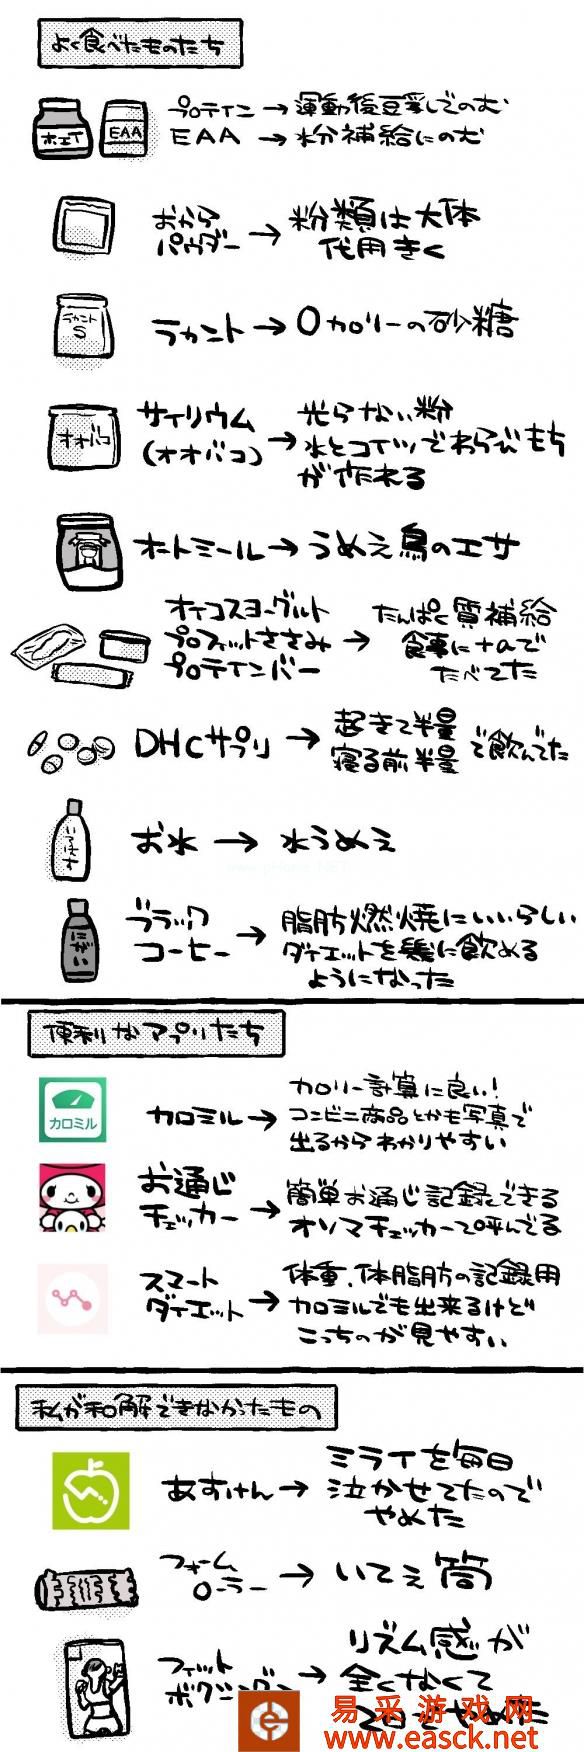 よく食べたものたち
ホエイ
EAA
プロテイン→運動後豆乳でのむ
EAA→水分補給にのむ
おから
パウダー→粉類は大体
代用きく
ラカント
S
ラカント→0カロリーの砂糖
オオバコ
サイリウム
(オオバコ)→光らない粉
水とコイツでわらびもち
が作れる
オートミール→うめえ鳥のエサ
オイコスヨーグルト
プロフィットささみ
プロテインバー→たんぱく質補給
食事に+αで
たべてた
DHCサプリ→起きて半量
寝る前半量
で飲んでた
いろはす
お水→水うめえ
にがい
ブラック
コーヒー→脂肪燃焼にいいらしい
ダイエットを機に飲める
ようになった
便利なアプリたち
カロミル
カロミル→カロリー計算に良い!
コンビニ商品とかも写真で
出るからわかりやすい
お通じ
チェッカー→簡単お通じ記録できる
オソマチェッカーて呼んでる
スマート
ダイエット→体重、体脂肪の記録用
カロミルでも出来るけど
こっちのが見やすい
私が和解できなかったもの
あすけん→ミライを毎日
泣かせてたので
やめた
フォーム
ローラー→いてえ筒
フィット
ボクシング→リズム感が
全くなくて
2日でやめた
易采游戏网
www.easck.net